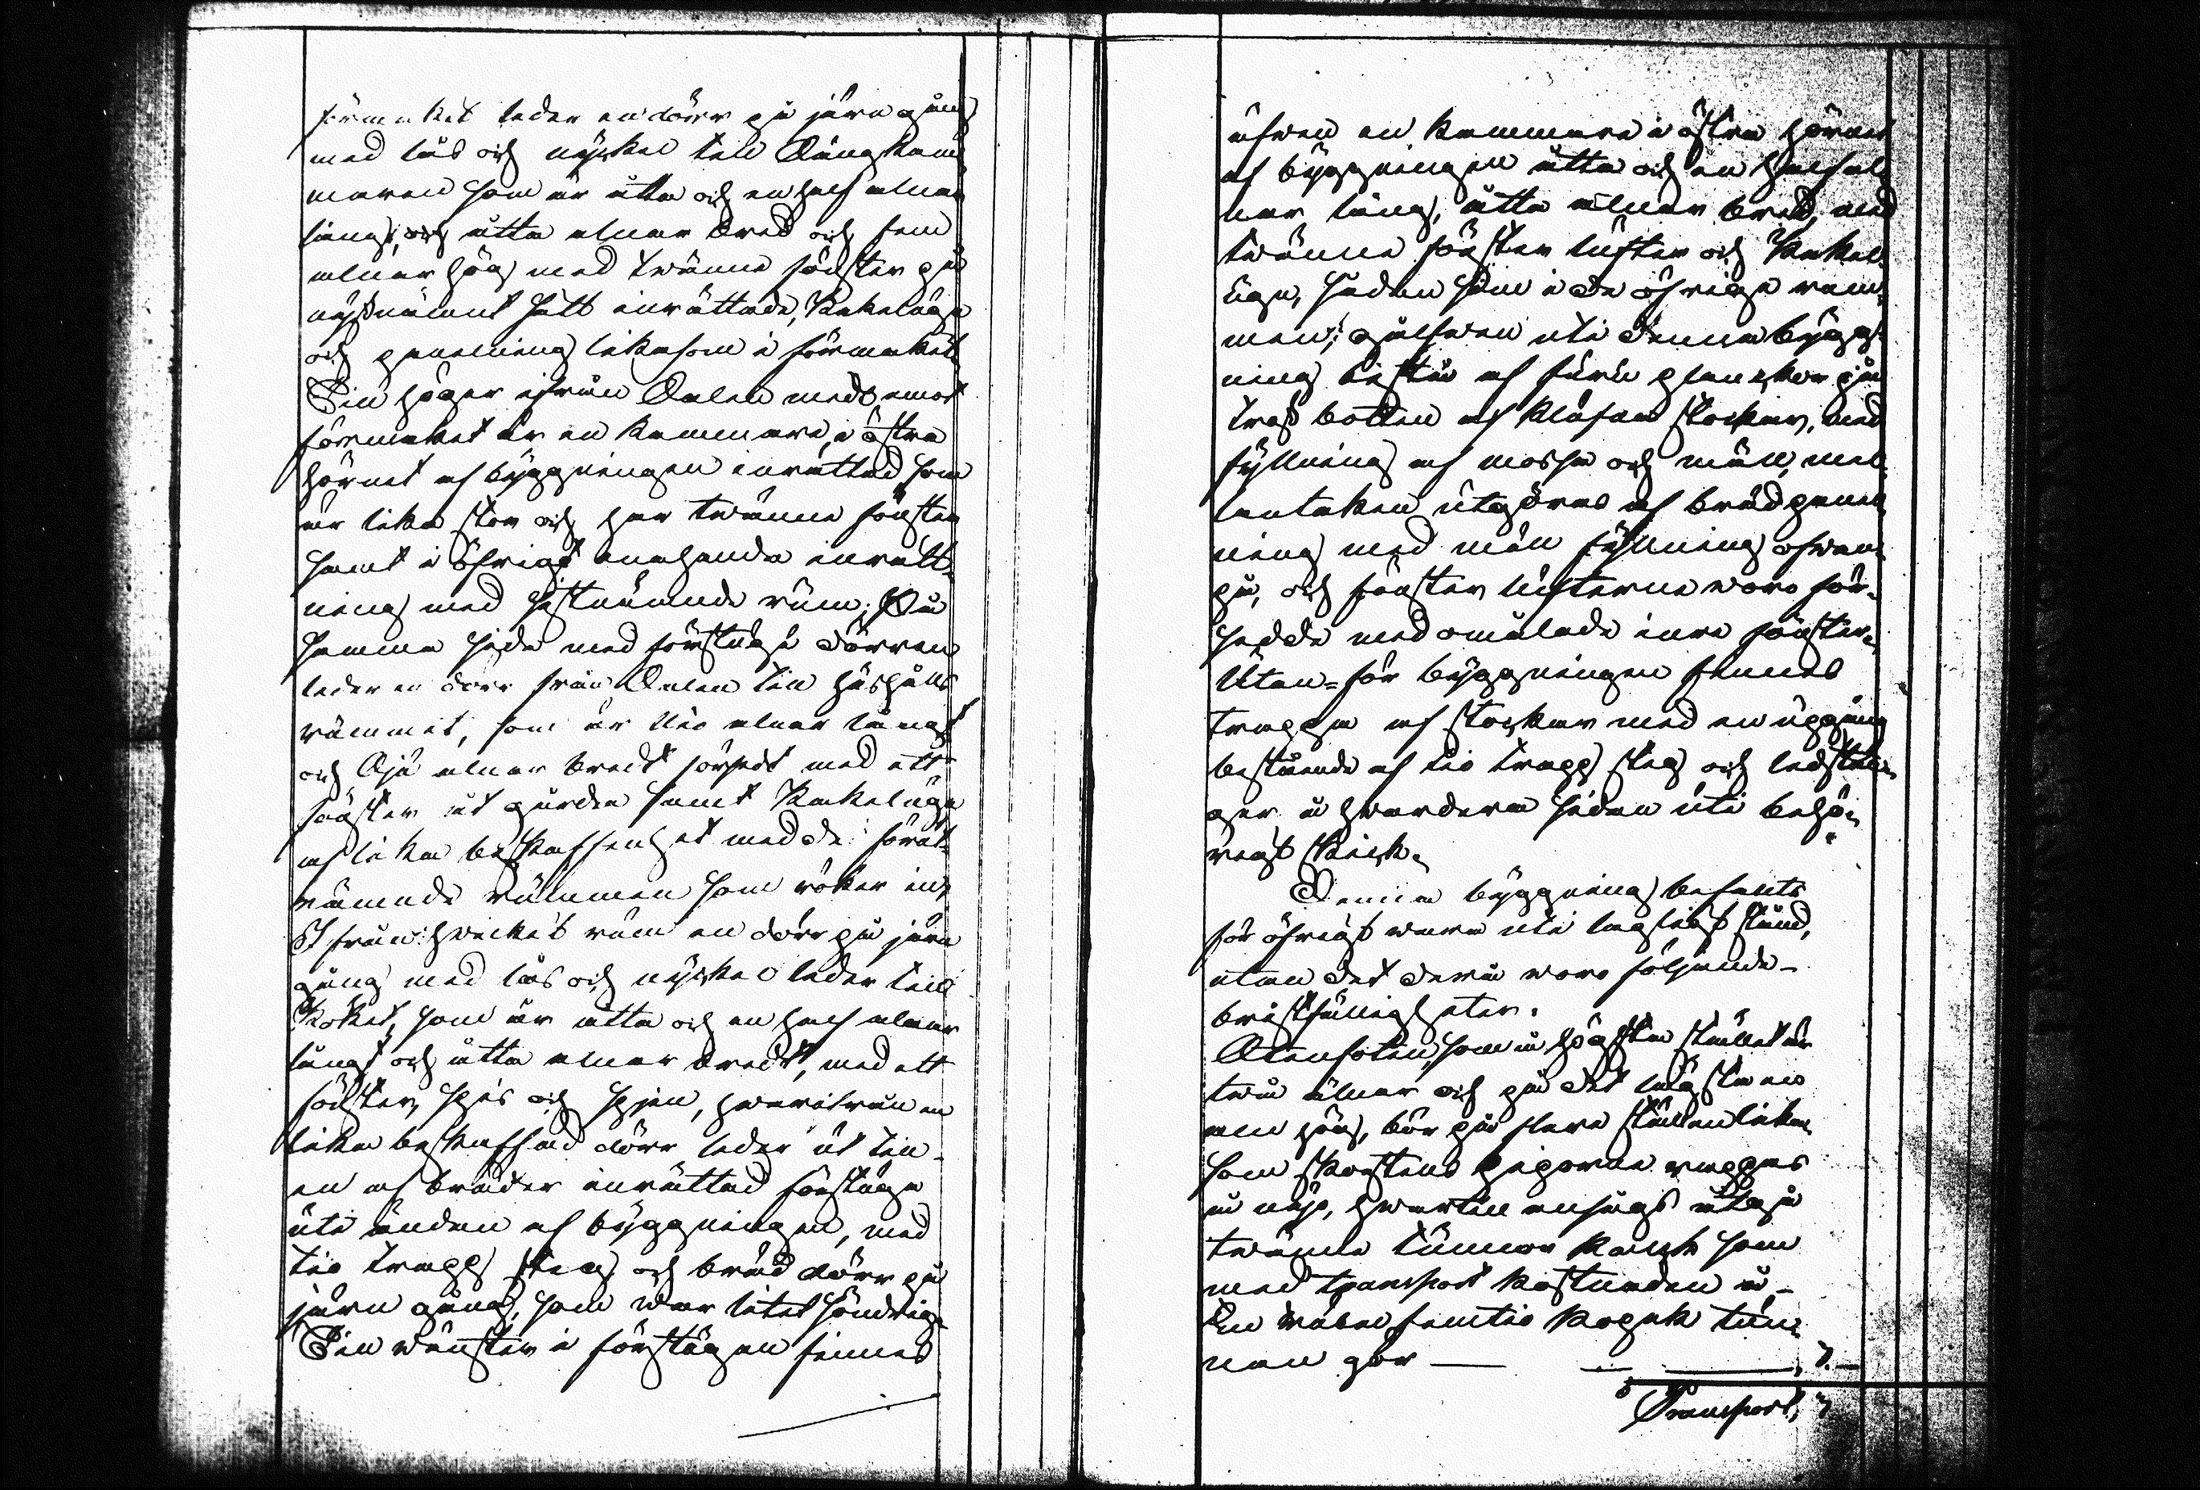 förmaket leder en dörr på järn gång
med lås och nyckel till Sängkam
maren som är åtta och en half alnar
lång, och åtta alnar bred och fem
alnar hög med twänne fönster på
nästnämnt sätt inrättade, Kakelugn
och panelning likasom i förmaket
Till höger ifrån Salen midt emot
förmaket är en kammare, i östra
hörnet af byggningen inrättad som
är lika stor och har twänne fönster
samt i öfrigt enahanda inrätt-
ning med sistnämnde rum; På
samma sida med förstugu dörren
leder en dörr från Salen till hushålls
rummet, som är tio alnar långt
och sju alnar bredt försedt med ett
fönster åt gården samt Kakelugn
af lika beskaffenhet med de förut-
nämnde rummen som röker in,
Ifrån hwilket rum en dörr på järn
gång med lås och nyckel leder till
Köket, som är åtta och en half alnar
långt och åtta alnar bredt, med ett
fönster, spis och spjell, hwarifrån en
lika beskaffad dörr leder ut till
en af bräder inrättad förstuga
uti ändan af byggningen, med
tio trapp steg och bräd dörr på
järn gång, som war litet söndrig.
Till wänster i förstugan finnes
äfwen en kammare i östra hörnet
af byggningen åtta och en half al-
nar lång, åtta alnar bred, med
twänne fönster lufter och Kakel-
ugn, sådan som i de öfriga rum-
men; golfwen uti denna bygg-
ning bestå af furu planckor på
tros botten af klufna stockar, med
fyllning af mossa och mull, mel-
lantaken utgöras af brädpanel-
ning med mull fyllning ofwan-
på, och fönster lufterne woro för-
sedde med omålade inre fönster.
Utan-för byggningen finnes
trappa af stockar med en uppgång
bestående af tio trapp steg och ledstän-
ger å hwardera sidan uti behö-
rigt skick.
Denna byggning befants
för öfrigt wara uti lagligt stånd,
utan det derå woro följande
bristfälligheter.
Stenfoten, som å högsta stället är
twå alnar och på det lägsta en
aln hög, bör på flera ställen lika-
som skorstens piporne rappas
å nyo, hwartill ansågs åtgå
twänne tunnor kalk som
med transport kostnaden à
En rubel femtio kopek tun-
nan gör — — — 3.—
Transport, 3